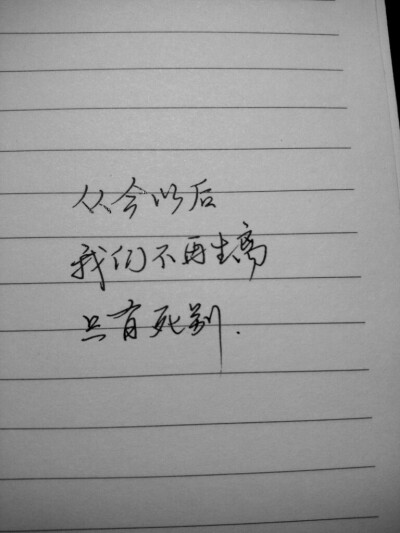 从今以后
我们不再生离
只有死别.